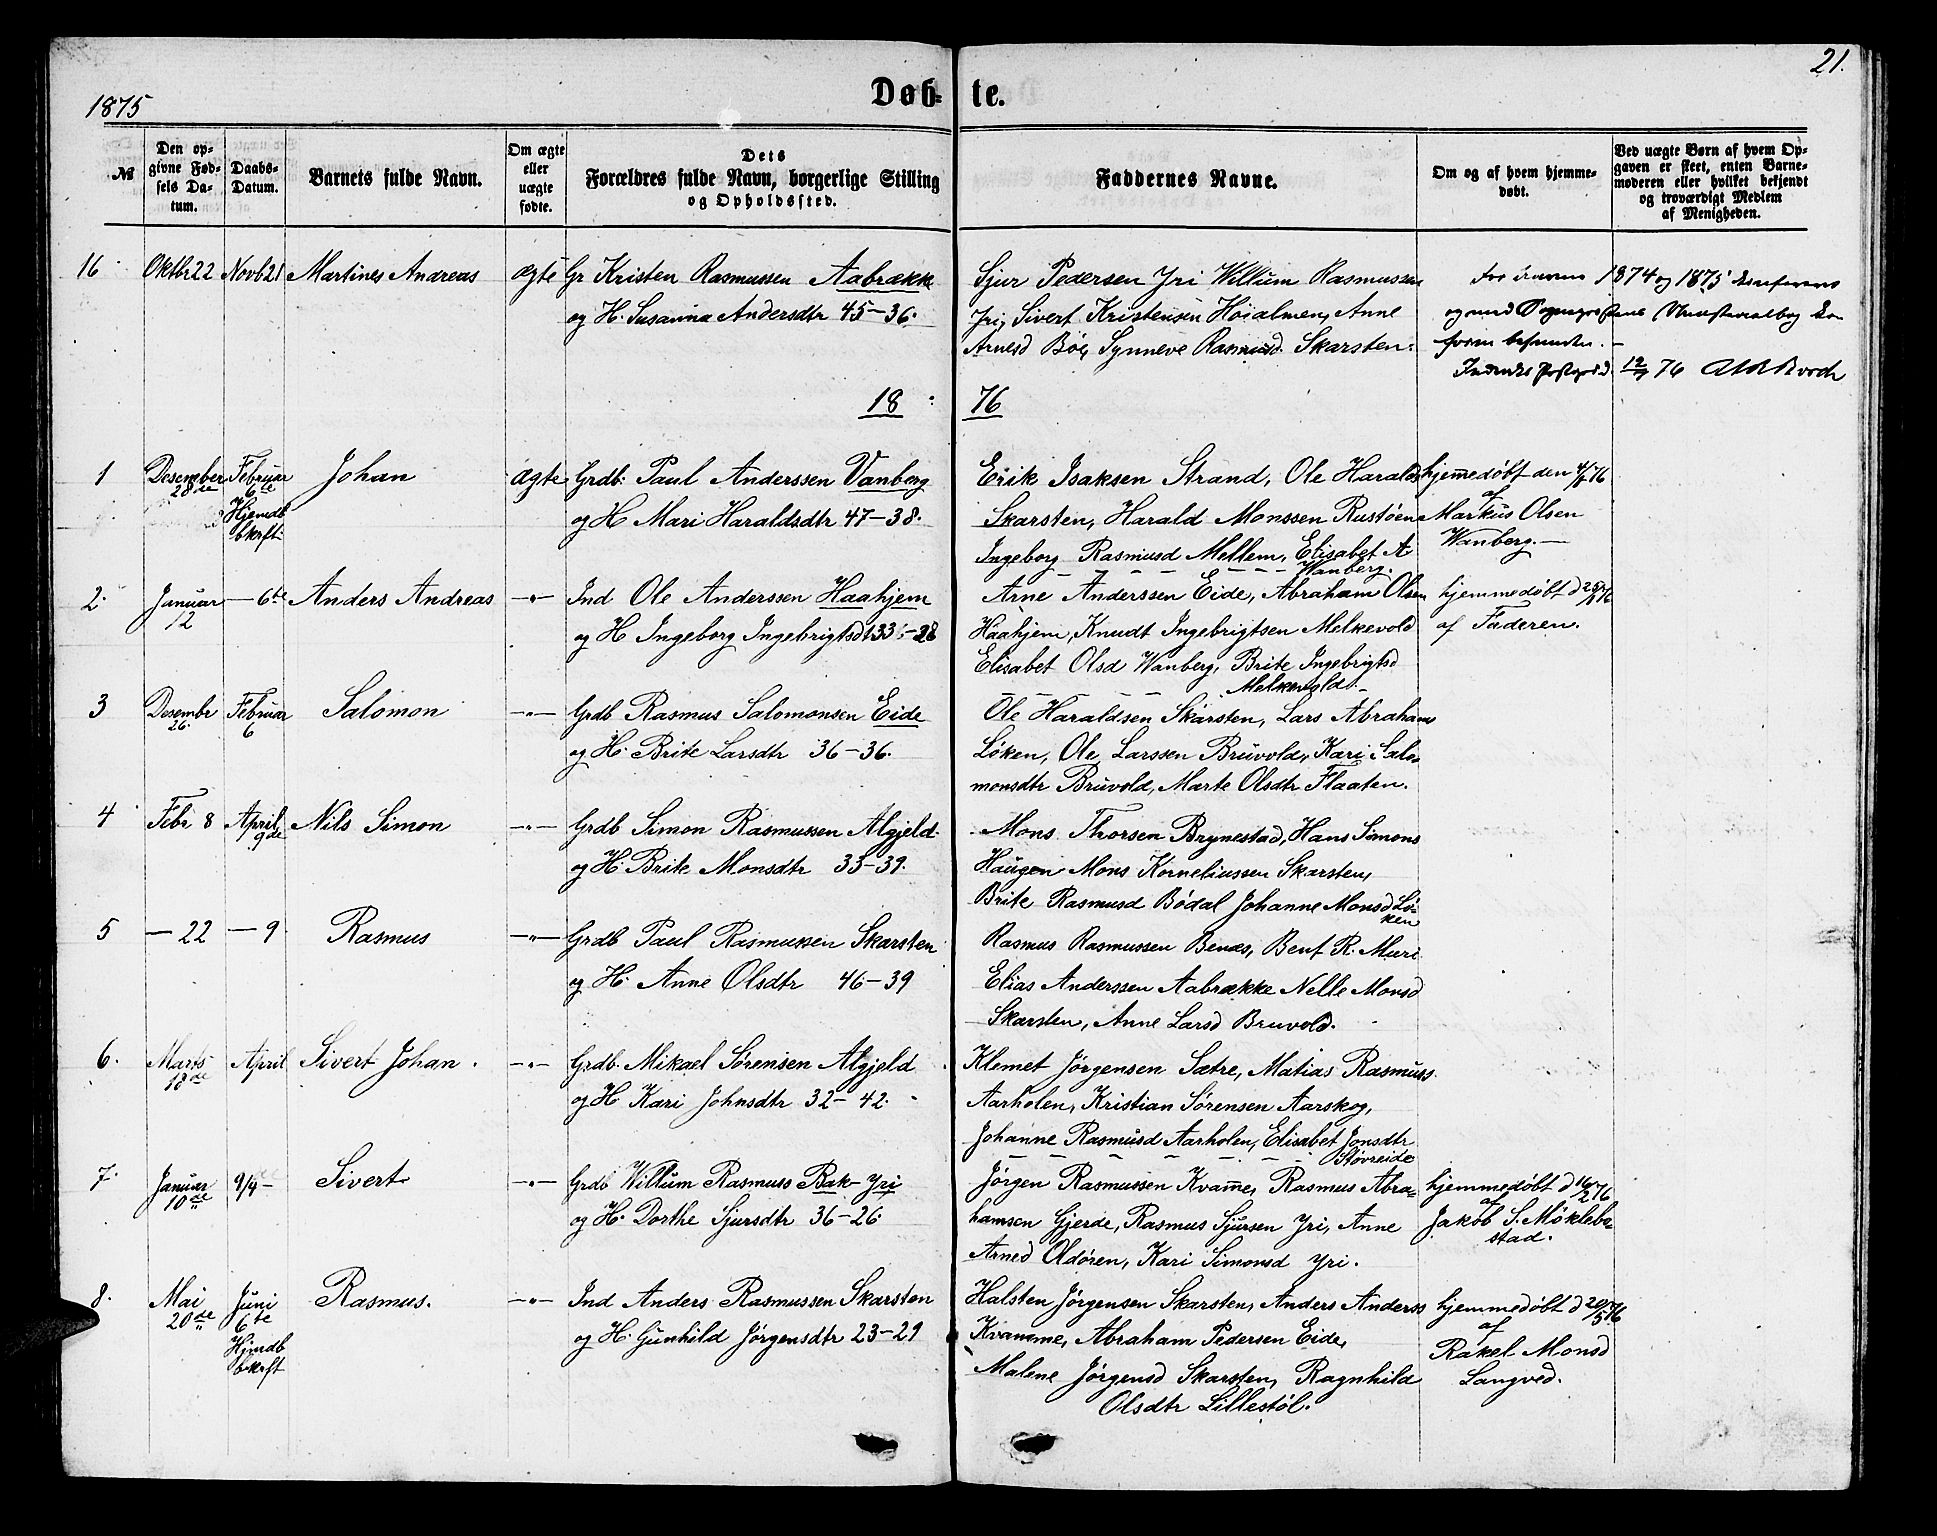 21.
1875
Døb- te.
№
Den opgivne Fødsels Datum.
Daabs-Datum.
Barnets fulde Navn.
Om ægte eller uægte fødte.
Dets Forældres fulde Navn, borgerlige Stilling og Opholdssted.
Faddernes Navne.
Om og af hvem hjemmedøbt.
Ved uægte Børn af hvem Opgaven er skeet, enten Barnemoderen eller hvilket bekjendt og troværdigt Medlem af Menigheden.
16 Oktbr 22 Novb 21 Martines Andreas ægte Gr Kristen Rasmussen Aabrække
og H. Susanna Andersdtr 45-36.
Sjur Pedersen Yri Willum Rasmussen
Yri, Sivert Kristensen Høialmen, Anne
Arnesd Böe, Synneve Rasmusd. Skarsten.
1874 og 1875
12/7 76
18 76
1 Desember 28de Februar 6te Hjemdb bkrft: Johan ægte Grdb: Paul Anderssen Vanberg
og H Mari Haraldsdtr 47-38.
Erik Isaksen Strand, Ole Haralds
Skarsten, Harald Monssen Rustöen
Ingeborg Rasmusd Mellem, Elisabet A
Wanberg.
hjemmedöbt den 4/1 76
af
Markus Olsen
Wanberg.
2. Januar 12 — 6te Anders Andreas —"— Ind Ole Anderssen Haahjem
og H Ingeborg Ingebrigtsdt 33-28
Arne Anderssen Eide, Abraham Olsen
Haahjem, Knudt Ingebrigtsen Melkevold
Elisabet Olsd Wanberg, Brite Ingebrigtsd
Melkevold.
hjemmedöbt d 25/1 76
af Faderen.
3 Desembr 26. Februar 6 Salomon —"— Grdb Rasmus Salomonsen Eide
og H. Brite Larsdtr 36-36.
Ole Haraldsen Skarsten, Lars Abrahams
Löken, Ole Larssen Bruvold, Kari Salo
monsdtr Bruvold, Marte Olsdtr Flaaten.
4 Febr 8 April 9de Nils Simon —"— Grdb Simon Rasmussen Algjeld
og H. Brite Monsdtr 35-39.
Mons Thorsen Brynestad, Hans Simons
Haugen Mons Korneliussen Skarsten,
Brite Rasmusd Bödal Johanne Monsd Lö-
ken
5 — 22 — 9 Rasmus —"— Grdb Paul Rasmussen Skarsten
og H. Anne Olsdtr 46-39
Rasmus Rasmussen Benæs, Bent R. Muri
Elias Anderssen Aabrække Nelle Monsd
Skarsten, Anne Larsd Bruvold.
6. Marts 18de April Sivert Johan. —"— Grdb. Mikael Sörensen Algjeld
og H Kari Johnsdtr 32-42.
Klemet Jörgensen Sætre, Matias Rasmuss
Aarholen, Kristian Sörensen Aarskog,
Johanne Rasmusd Aarholen, Elisabet Jonsdtr
Stövreide
7. Januar 10de 9/4 — Sivert —"— Grdb Willum Rasmuss Bak-Yri
og H. Dorthe Sjursdtr 36-26.
Jörgen Rasmussen Kvamme, Rasmus Abra-
hamsen Gjerde, Rasmus Sjursen Yri, Anne
Arnesd Oldören, Kari Simonsd Yri.
hjemmedöbt d 16/2 76
af
Jakob S. Möklebo
stad.
8. Mai 20de Juni 6te Hjmdb bkrft Rasmus. —"— Ind Anders Rasmussen Skarsten
og H. Gunhild Jörgensdtr 23-29
Halsten Jörgensen Skarsten, Anders Anderss
Kvamme, Abraham Pedersen Eide,
Malene Jörgensd Skarsten, Ragnhild
Olsdtr Lillestöl.
hjemmedöbt d 20/5 76
af
Rakel Monsd
Langved.